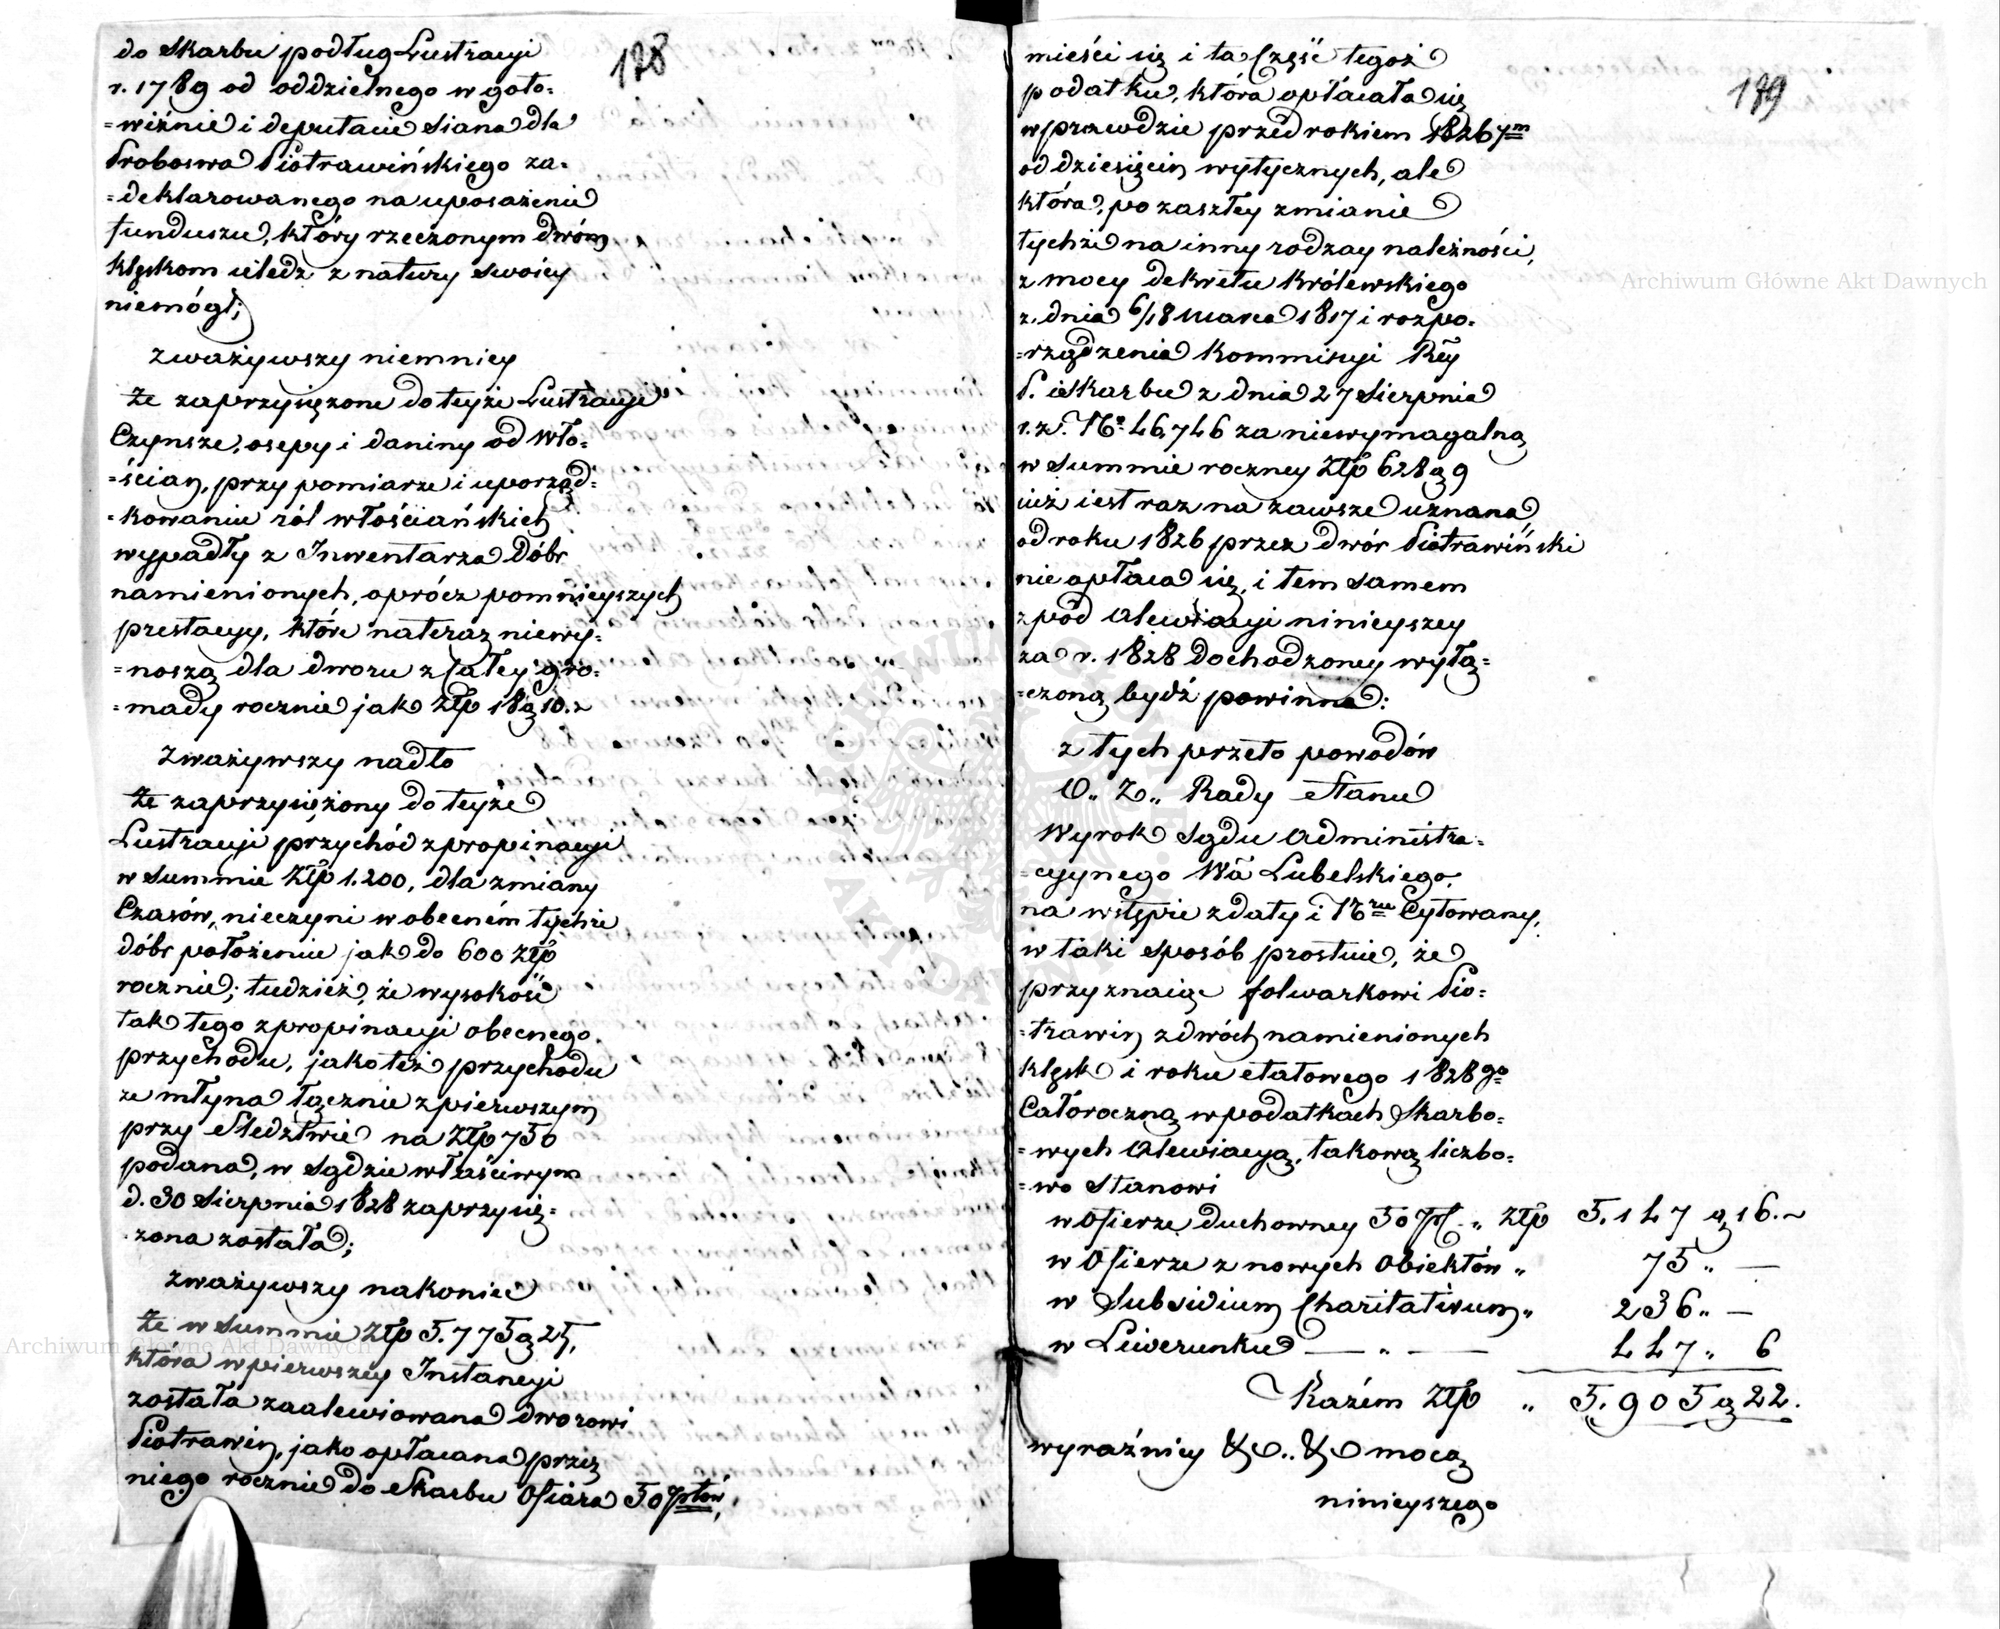 128
do Skarbu podług Lustracyi
r. 1789 od oddzielnego w goto=
=wiźnie i deputacie Siana dla
Proboswa Piotrawińskiego za=
=deklarowanego na uposażenie
funduszu, który rzeczonym dwóm
klęskom uledz z natury swoiey
niemógł;
zważywszy niemniey
Że zaprzysiężone do teyże Lustracyi
Czynsze, osepy i daniny od Wło=
=ścian, przy pomiarze i uporząd=
=kowaniu ról włościańskich
wypadły z Inwentarza Dóbr
namienionych, oprócz pomnieyszych
prestacyy, które nateraz niewy=
=noszą dla dworu z całey gro=
=mady rocznie jak Złp 18 g 10.
Zważywszy nadto
Że zaprzysiężony do teyże
Lustracyi przychód z propinacyi
w Summie Złp 1.200, dla zmiany
Czasów, nieczyni w obecném tychże
dóbr położeniu jak do 600 Złp
rocznie; tudzież, że wysokość
tak tego z propinacyi obecnego
przychodu, jako też przychodu
ze młyna łącznie z pierwszym
przy Sledztwie na Złp 750
podana, w Sądzie właściwym
d. 30 Sierpnia 1828 zaprzysię=
zona została;
zważywszy nakoniec
Że w Summie Złp 5.775 g 25,
która w pierwszey Instancyi
została zaalewiowana dworowi
Piotrawin, jako opłacana przez
niego rocznie do Skarbu Ofiara 50 Płów,
189
mieści się i ta Część tegoż
podatku, która opłacała się
wprawdzie przed rokiem 1826ym
od dziesięcin wytycznych, ale
która, po zaszłey zmianie
tychże na inny rodzay należności,
z mocy dekretu Królewskiego
z dnia 6/18 Marca 1817 i rozpo=
=rządzenia Kommissyi Rẽy
P. i Skarbu z dnia 27 Sierpnia
r. z. No 46,746 za niewymagalną
w Summie roczney Złp 628 g 9
iuż iest raz na zawsze uznana
od roku 1826 przez dwór Piotrawiński
nie opłaca się, i tem samem
z pod alewiacyi ninieyszey
za r. 1828 dochodzoney wyłą=
=czoną bydź powinna:
z tych przeto powodów
O.. Z.. Rady Stanu
Wyrok Sądu Administra=
=cyynego Wa Lubelskiego,
na wstępie z daty i Nru Cytowany,
w taki sposób prostuie, że
przyznaiąc folwarkowi Pio=
=trawin z dwóch namienionych
klęsk i roku etatowego 1828go
Całoroczną w podatkach Skarbo=
=wych Alewiacyą, takową liczbo=
=wo Stanowi
w Ofierze duchowney 50 Pl. „ Złp 5.147 g 16.~
w Ofierze z nowych Obiektów „ 75 „ —
w Subsidium Charitativum „ 236 „ —
w Liwerunku — „ — 447 „ 6
Razém Złp „ 5.905 g 22.
wyraźniey &c.. &c mocą
ninieyszego
Archiwum Główne Akt Dawnych
Archiwum Główne Akt Dawnych